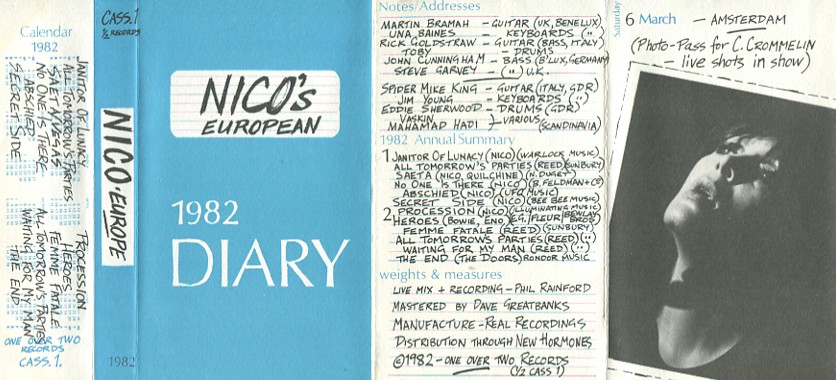 Calendar
1982
JANITOR OF LUNACY
ALL TOMORROW'S PARTIES
SAETA / VEGAS
NO ONE IS THERE
ABSCHIED
SECRET SIDE
PROCESSION
HEROES
FEMME FATALE
ALL TOMORROW'S PARTIES
WAITING FOR MY MAN
THE END
ONE OVER TWO
RECORDS
CASS. 1.
CASS. 1
½ RECORDS
NICO-EUROPE
1982
NICO's
EUROPEAN
1982
DIARY
Notes/Addresses
MARTIN BRAMAH - GUITAR (UK, BENELUX)
UNA BAINES - KEYBOARDS (")
RICK GOLDSTRAW - GUITAR (BASS, ITALY)
TOBY - DRUMS
JOHN CUNNINGHAM - BASS (B'LUX, GERMANY)
STEVE GARVEY - (") U.K.
SPIDER MIKE KING - GUITAR (ITALY, GDR)
JIM YOUNG - KEYBOARDS (")
EDDIE SHERWOOD - DRUMS (GDR)
VASKIN
MAHAMAD HADI } VARIOUS (SCANDINAVIA)
1982 Annual Summary
1 JANITOR OF LUNACY (NICO) (WARLOCK MUSIC)
ALL TOMORROW'S PARTIES (REED) (SUNBURY)
SAETA (NICO, QUILCHINE) (N. DUGET)
NO ONE IS THERE (NICO) (B. FELDMAN + CO)
ABSCHIED (NICO) (UFO MUSIC)
SECRET SIDE (NICO) (BEE BEE MUSIC)
2 PROCESSION (NICO) (ILLUMINATING MUSIC)
HEROES (BOWIE, ENO) (E.G./FLEUR/BEWLAY BROS)
FEMME FATALE (REED) (SUNBURY)
ALL TOMORROWS PARTIES (REED) (")
WAITING FOR MY MAN (REED) (")
THE END (THE DOORS) RONDOR MUSIC
weights & measures
LIVE MIX + RECORDING - PHIL RAINFORD
MASTERED BY DAVE GREATBANKS
MANUFACTURE - REAL RECORDINGS
DISTRIBUTION THROUGH NEW HORMONES
©1982 - ONE OVER TWO RECORDS
(½ CASS 1)
Saturday
6 March - AMSTERDAM
(PHOTO-PASS FOR C. CROMMELIN
- LIVE SHOTS IN SHOW)